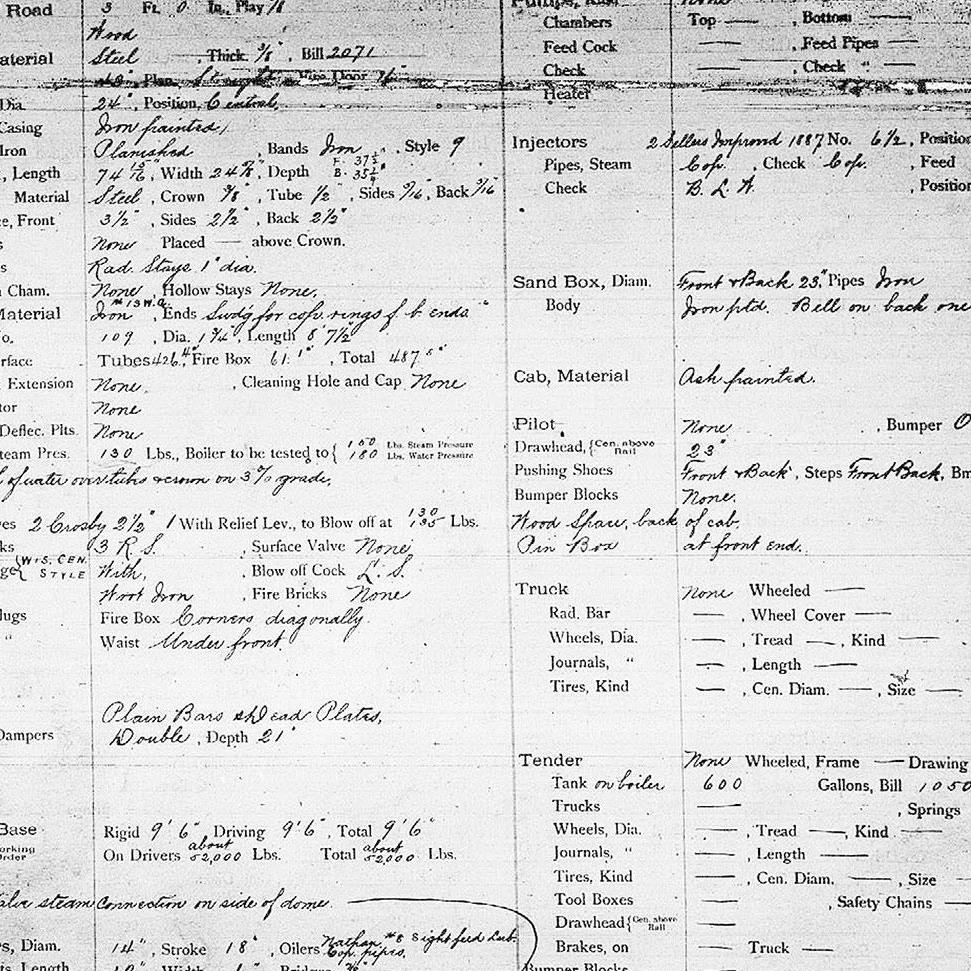 Road 3 Ft. 0 In., Play
Wood
aterial Steel , Thick. 3/8", Bill 2071
Plan, Fire Door
Dia. 24", Position, Central,
Casing Iron painted,
Iron Planished , Bands Iron , Style 9
, Length 74 , Width 24 , Depth F. B.
Material Steel, Crown 3/8", Tube 1/2", Sides 5/16, Back 5/16"
e, Front 3 1/2", Sides 2 1/2", Back 2 1/2"
s None Placed — above Crown.
s Rad. Stays 1" dia.
Cham. None , Hollow Stays None.
Material Iron #13 W.G., Ends Swdg for cop. rings f. & b ends.
o. 109 , Dia. 1 3/4", Length 8' 7 1/2"
rface Tubes 426.4, Fire Box 61.1, Total 487.5
Extension None. , Cleaning Hole and Cap None
tor None
Deflec. Plts. None
team Pres. 130 Lbs., Boiler to be tested to { Lbs. Steam Pressure 180 Lbs. Water Pressure
of water over tubes & crown on 3% grade.
es 2 Crosby 2 1/2" 1 With Relief Lev., to Blow off at 130 135 Lbs.
ks 3 R. S. , Surface Valve None
ge { WIS. CEN. STYLE With, , Blow off Cock L. S.
Wort Iron , Fire Bricks None
lugs Fire Box Corners diagonally.
" Waist Under front.
Plain Bars & Dead Plates,
Dampers Double , Depth 21"
Base Rigid 9' 6", Driving 9' 6", Total 9' 6"
orking Order On Drivers about 52,000 Lbs. Total about 52,000 Lbs.
alve steam connection on side of dome.
s, Diam. 14", Stroke 18", Oilers Nathan #8 Sight feed Lub. Cop. pipes.
Chambers Top — , Bottom —
Feed Cock — , Feed Pipes —
Check — , Check " —
Heater
Injectors 2 Sellers Improved 1887 No. 6 1/2, Position
Pipes, Steam Cop. , Check Cop. , Feed
Check B. L. W. , Position
Sand Box, Diam. Front & Back 23", Pipes Iron
Body Iron ptd. Bell on back one
Cab, Material Ash painted.
Pilot None , Bumper O
Drawhead, { Cen. above Rail 23"
Pushing Shoes Front & Back, Steps Front & Back, Bm
Bumper Blocks None.
Wood Spaw, back of cab.
Pin Box at front end.
Truck None Wheeled —
Rad. Bar — , Wheel Cover —
Wheels, Dia. — , Tread — , Kind —
Journals, " — , Length —
Tires, Kind — , Cen. Diam. — , Size —
Tender None Wheeled, Frame — Drawing
Tank on boiler 600 Gallons, Bill 1050
Trucks — , Springs
Wheels, Dia. — , Tread — , Kind —
Journals, " — , Length —
Tires, Kind — , Cen. Diam. — , Size —
Tool Boxes — , Safety Chains —
Drawhead { Cen. above Rail
Brakes, on — Truck —
Bumper Blocks